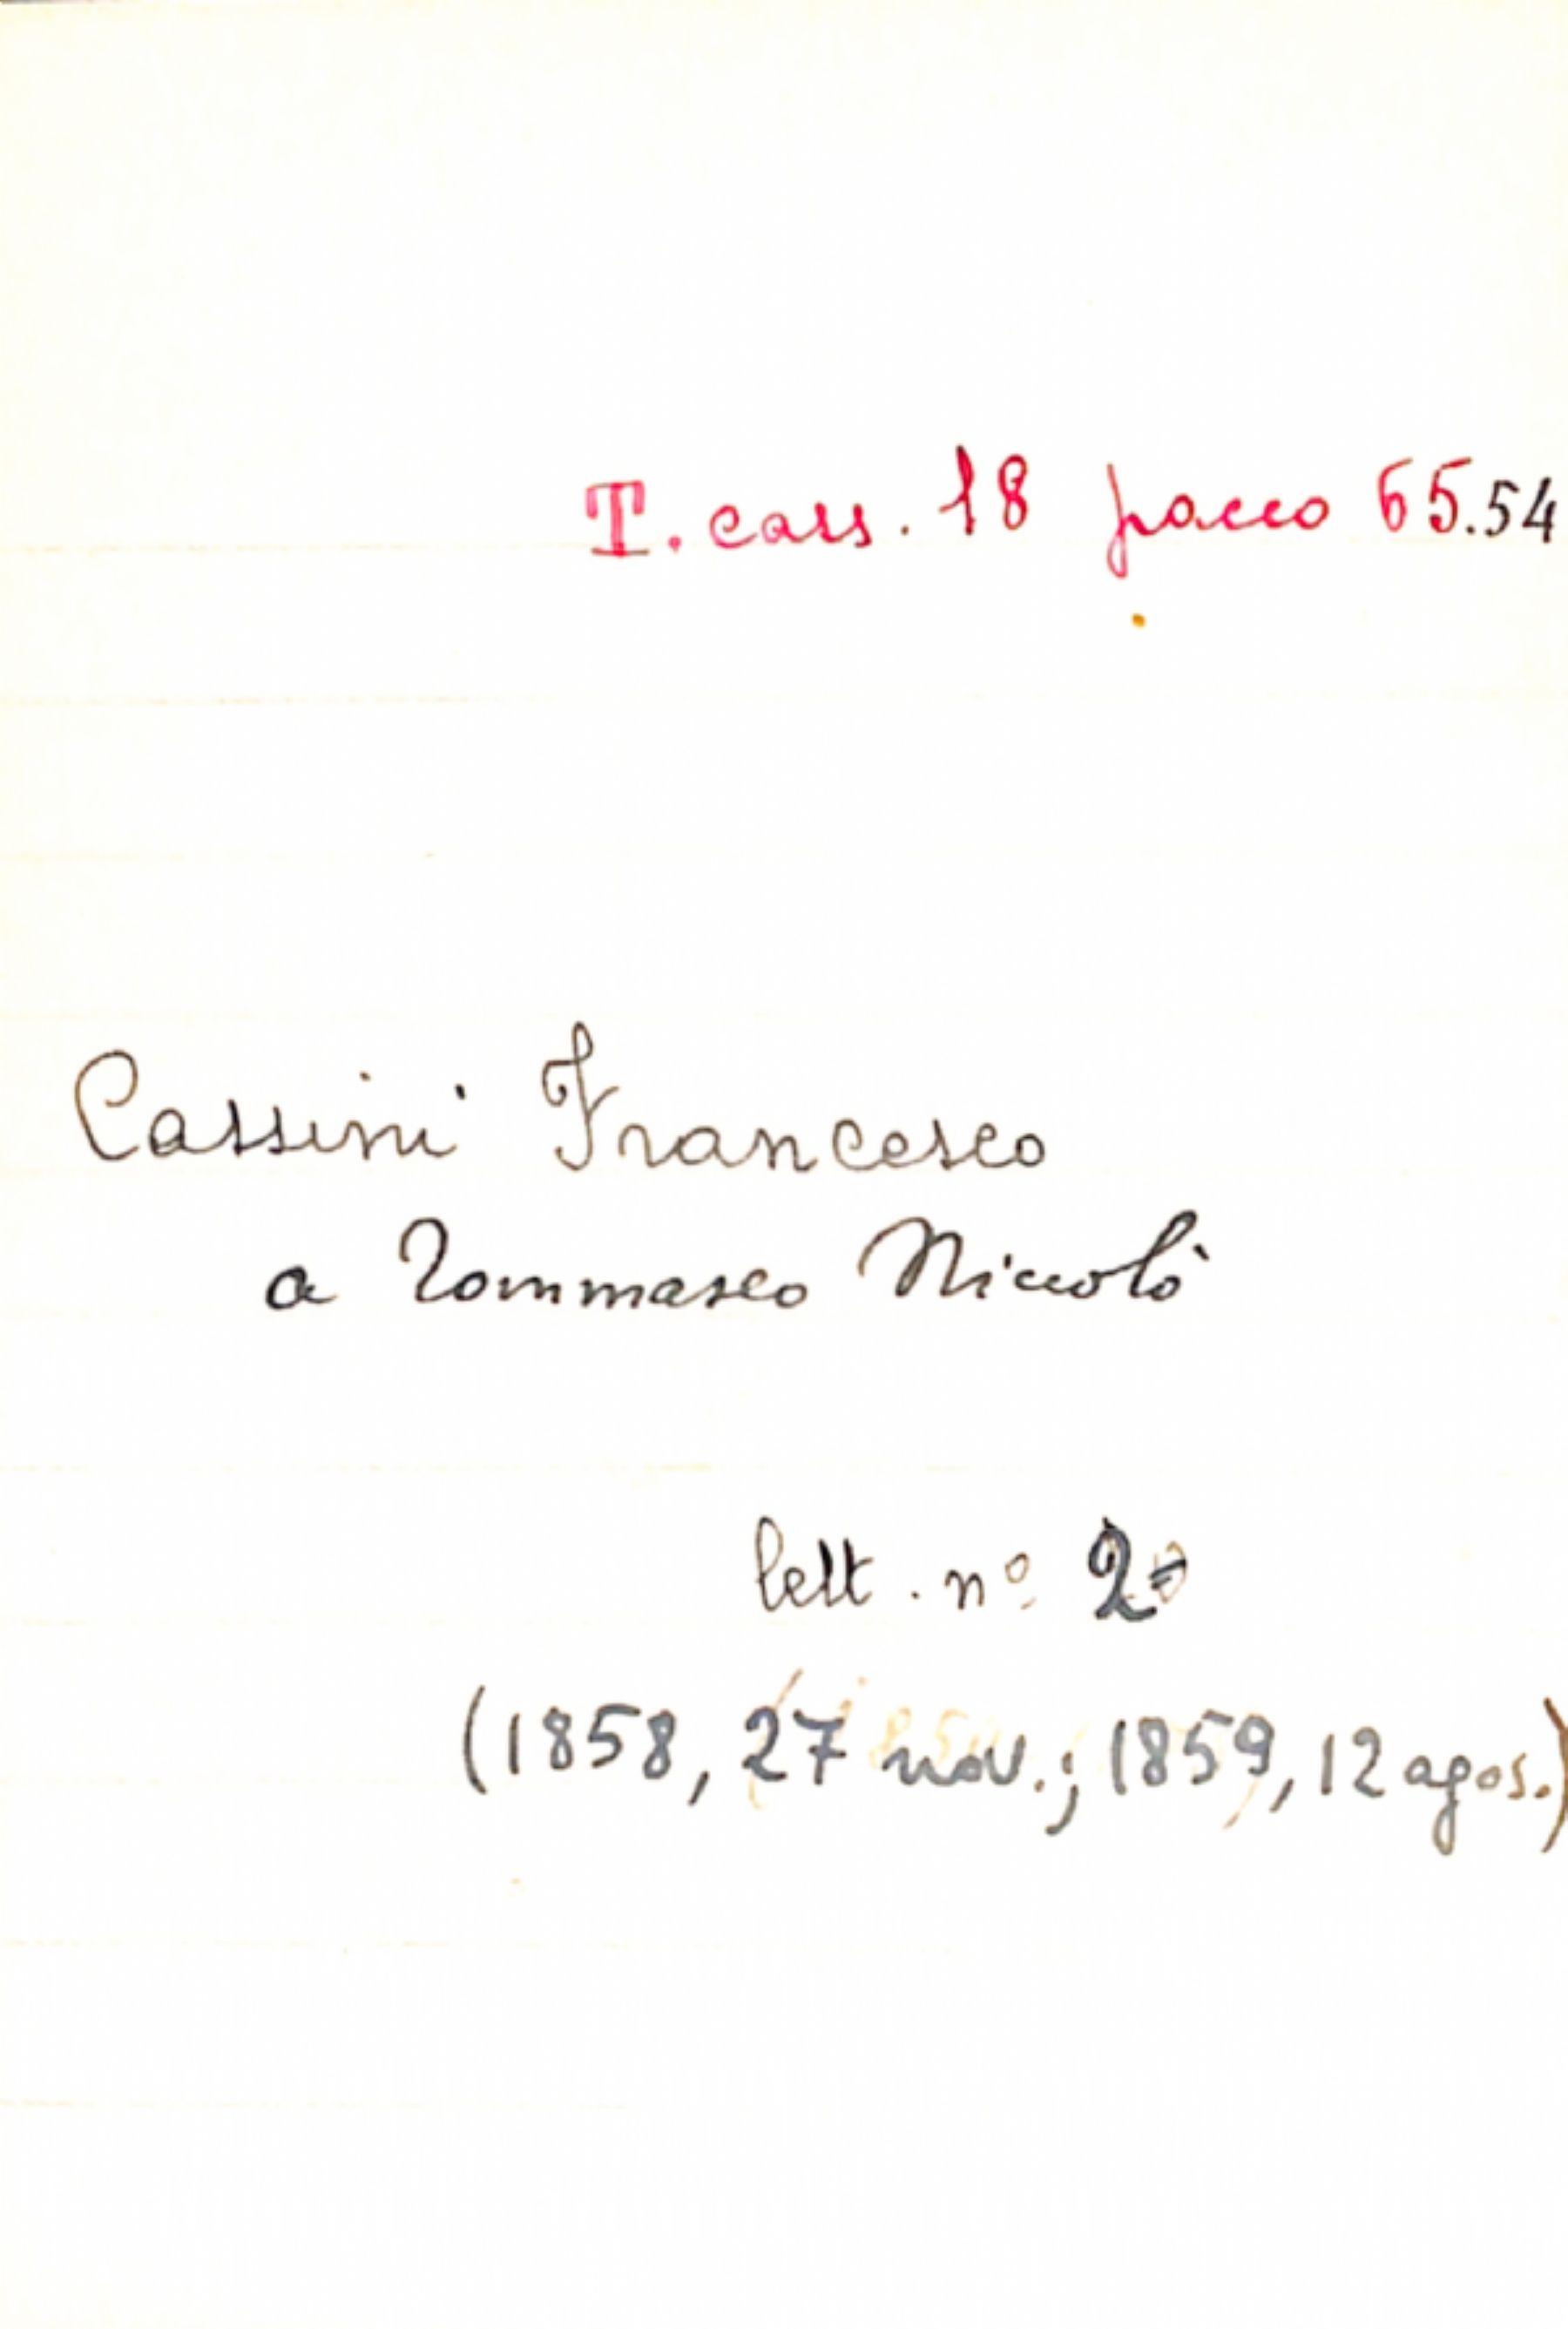 T. cass. 18 pacco 65.54
Cassini Francesco
a Tommaseo Niccolò
lett. nº 2
(1858, 27 nov.; 1859, 12 agos.)